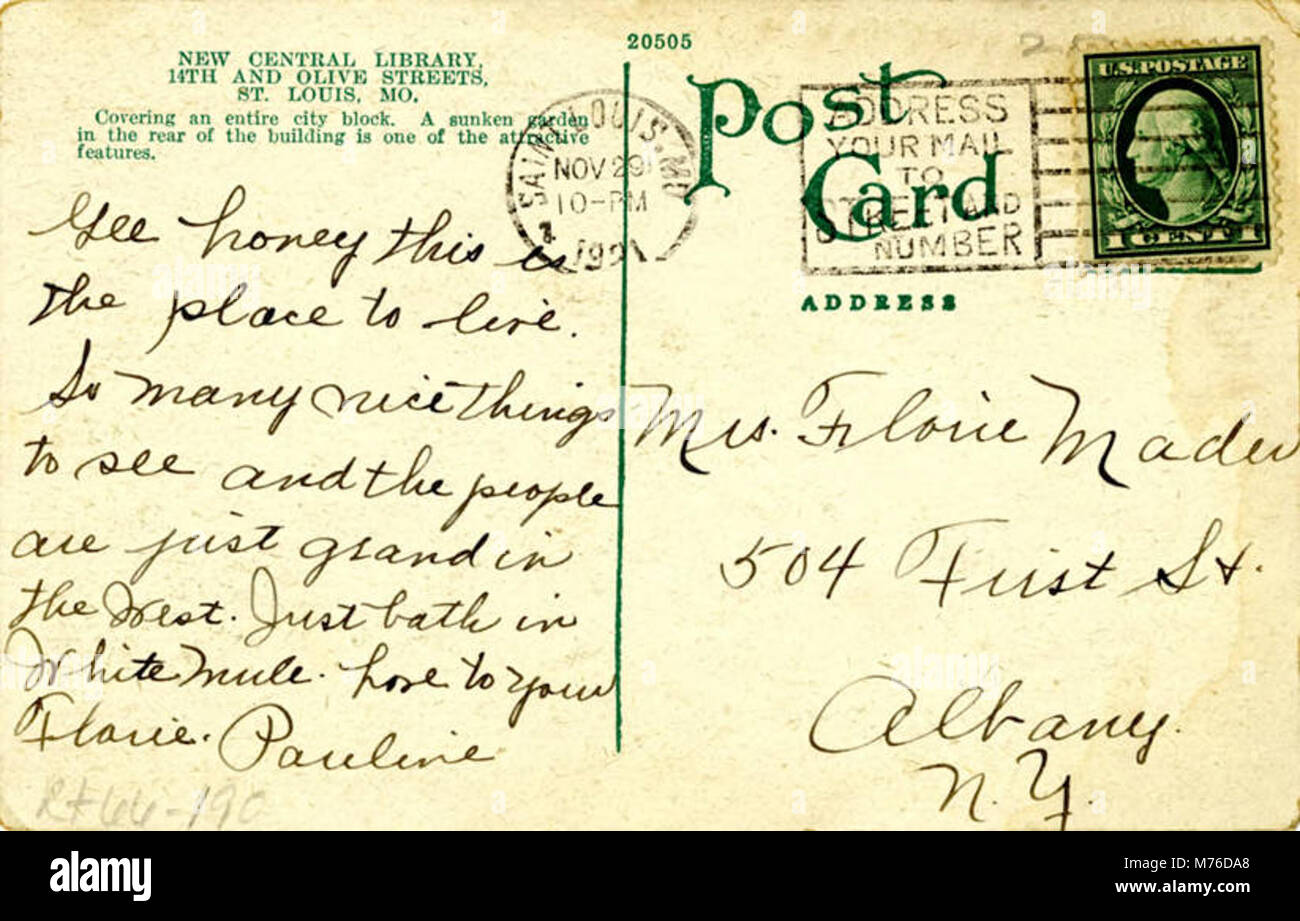 20505
NEW CENTRAL LIBRARY,
14TH AND OLIVE STREETS,
ST. LOUIS, MO.
Covering an entire city block. A sunken garden
in the rear of the building is one of the attractive
features.
Gee honey this is
the place to live.
So many nice things
to see and the people
are just grand in
the West. Just bath in
White mule. love to you
Florie. Pauline
Rt 66-190
Post
Card
ADDRESS
SAINT LOUIS. MO
NOV 29
10-PM
ADDRESS
YOUR MAIL
TO
STREET AND
NUMBER
U.S. POSTAGE
1 CENT 1
Mrs. Florie Mader
504 First St.
Albany.
N.Y.
alamy
alamy
alamy
alamy
alamy
alamy
Image ID: M76DA8
www.alamy.com